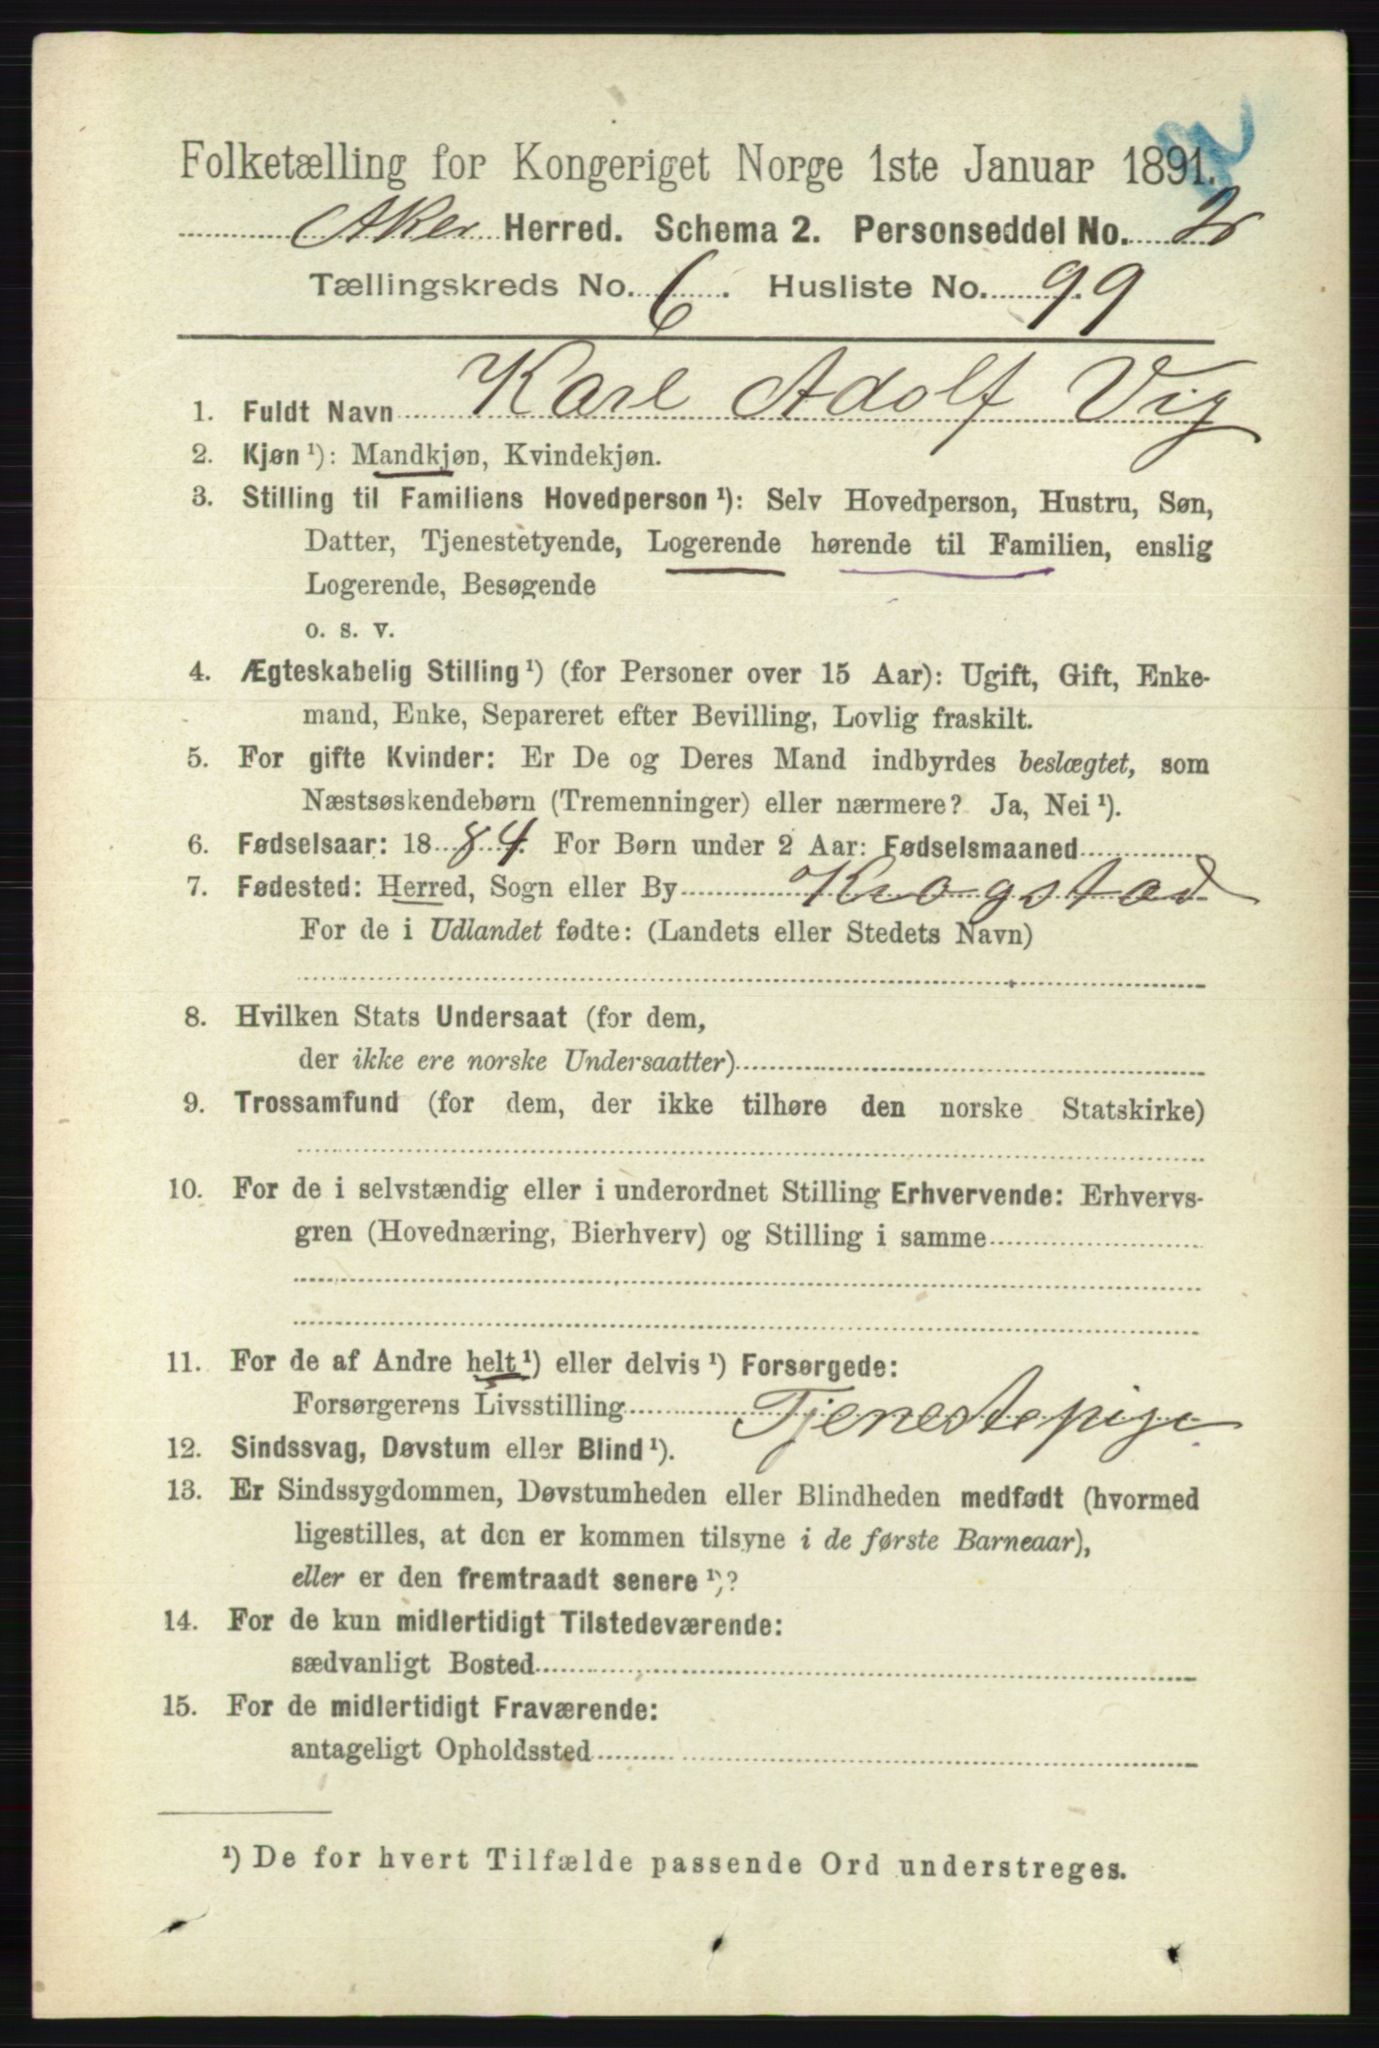 Folketælling for Kongeriget Norge 1ste Januar 1891.
Aker Herred. Schema 2. Personseddel No. 2
Tællingskreds No. 6. Husliste No. 99
1. Fuldt Navn Karl Adolf Vig
2. Kjøn ¹): Mandkjøn, Kvindekjøn.
3. Stilling til Familiens Hovedperson ¹): Selv Hovedperson, Hustru, Søn,
Datter, Tjenestetyende, Logerende hørende til Familien, enslig
Logerende, Besøgende
o. s. v.
4. Ægteskabelig Stilling ¹) (for Personer over 15 Aar): Ugift, Gift, Enke-
mand, Enke, Separeret efter Bevilling, Lovlig fraskilt.
5. For gifte Kvinder: Er De og Deres Mand indbyrdes beslægtet, som
Næstsøskendebørn (Tremenninger) eller nærmere? Ja, Nei ¹).
6. Fødselsaar: 1884. For Børn under 2 Aar: Fødselsmaaned
7. Fødested: Herred, Sogn eller By Krogstad
For de i Udlandet fødte: (Landets eller Stedets Navn)
8. Hvilken Stats Undersaat (for dem,
der ikke ere norske Undersaatter)
9. Trossamfund (for dem, der ikke tilhøre den norske Statskirke)
10. For de i selvstændig eller i underordnet Stilling Erhvervende: Erhvervs-
gren (Hovednæring, Bierhverv) og Stilling i samme
11. For de af Andre helt ¹) eller delvis ¹) Forsørgede:
Forsørgerens Livsstilling Tjenestepige
12. Sindssvag, Døvstum eller Blind ¹).
13. Er Sindssygdommen, Døvstumheden eller Blindheden medfødt (hvormed
ligestilles, at den er kommen tilsyne i de første Barneaar),
eller er den fremtraadt senere ¹)?
14. For de kun midlertidigt Tilstedeværende:
sædvanligt Bosted
15. For de midlertidigt Fraværende:
antageligt Opholdssted
¹) De for hvert Tilfælde passende Ord understreges.